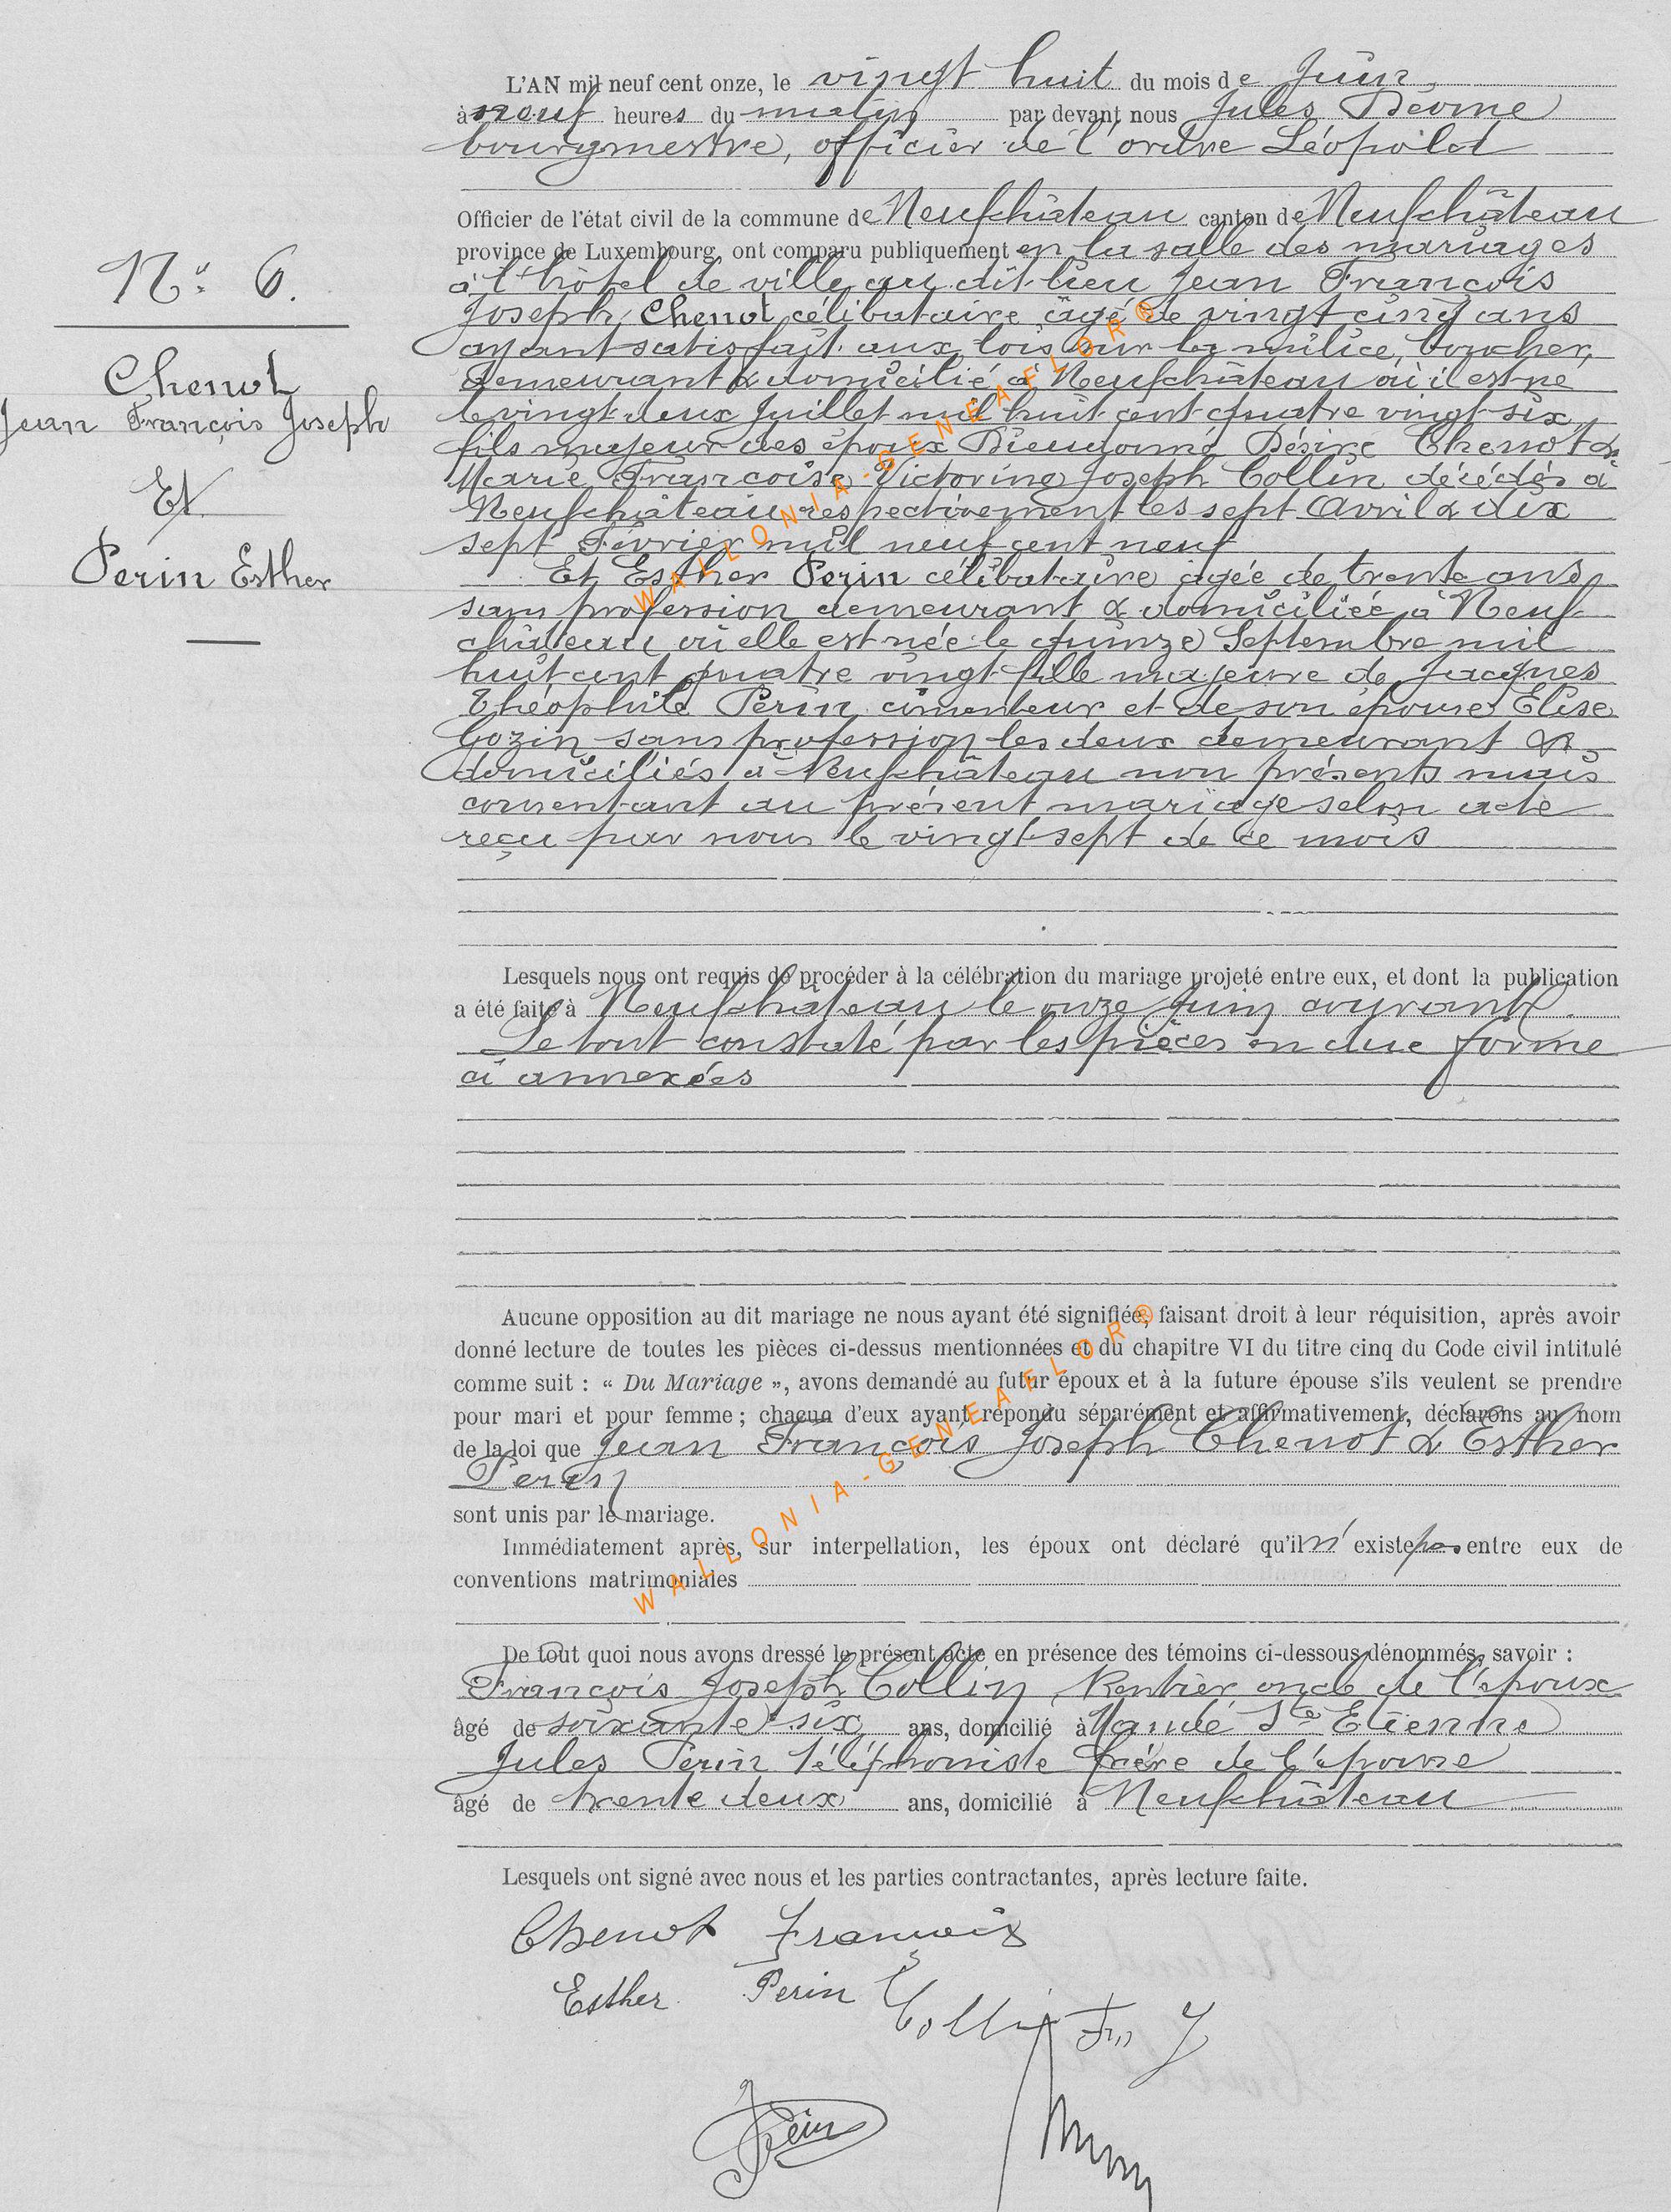 L'AN mil neuf cent onze, le vingt huit du mois de Juin
à neuf heures du matin par devant nous Jules
bourgmestre, officier de l'ordre Léopold
Officier de l'état civil de la commune de Neufchâteau canton de Neufchâteau
province de Luxembourg, ont comparu publiquement en la salle des mariages
à l'hôtel de ville au dit lieu Jean François
Joseph Chenot célibataire âgé de vingt cinq ans
ayant satisfait aux lois sur la milice, boucher,
demeurant & domicilié à Neufchâteau où il est né
le vingt deux Juillet mil huit cent quatre vingt six
fils majeur des époux Dieudonné Désiré Chenot &
Marie Françoise Victorine Joseph Collin décédés à
Neufchâteau respectivement les sept Avril & dix
sept Février mil neuf cent neuf
Et Esther Perin célibataire agée de trente ans
sans profession demeurant & domiciliée à Neuf-
château où elle est née le quinze Septembre mil
huit cent quatre vingt fille majeure de Jacques
Théophile Perin cimenteur et de son épouse Elise
Gozin sans profession les deux demeurant &
domiciliés à Neufchâteau non présents mais
consentant au présent mariage selon acte
reçu par nous le vingt sept de ce mois
N° 6.
Chenot
Jean François Joseph
Et
Perin Esther
Lesquels nous ont requis de procéder à la célébration du mariage projeté entre eux, et dont la publication
a été faite à Neufchâteau le onze Juin courant.
Le tout constaté par les pièces en due forme
ci annexées
Aucune opposition au dit mariage ne nous ayant été signifiée, faisant droit à leur réquisition, après avoir
donné lecture de toutes les pièces ci-dessus mentionnées et du chapitre VI du titre cinq du Code civil intitulé
comme suit : « Du Mariage », avons demandé au futur époux et à la future épouse s'ils veulent se prendre
pour mari et pour femme ; chacun d'eux ayant répondu séparément et affirmativement, déclarons au nom
de la loi que Jean François Joseph Chenot & Esther
Perin
sont unis par le mariage.
Immédiatement après, sur interpellation, les époux ont déclaré qu'il n'existe pas entre eux de
conventions matrimoniales
De tout quoi nous avons dressé le présent acte en présence des témoins ci-dessous dénommés, savoir :
François Joseph Collin, Rentier oncle de l'époux
âgé de soixante six ans, domicilié à Vaudé Ste Etienne
Jules Perin téléphoniste frère de l'épouse
âgé de trente deux ans, domicilié à Neufchâteau
Lesquels ont signé avec nous et les parties contractantes, après lecture faite.
Chenot François
Esther Perin
Collin Fs J
JPerin
WALLONIA-GENEAFLOR®
WALLONIA-GENEAFLOR®